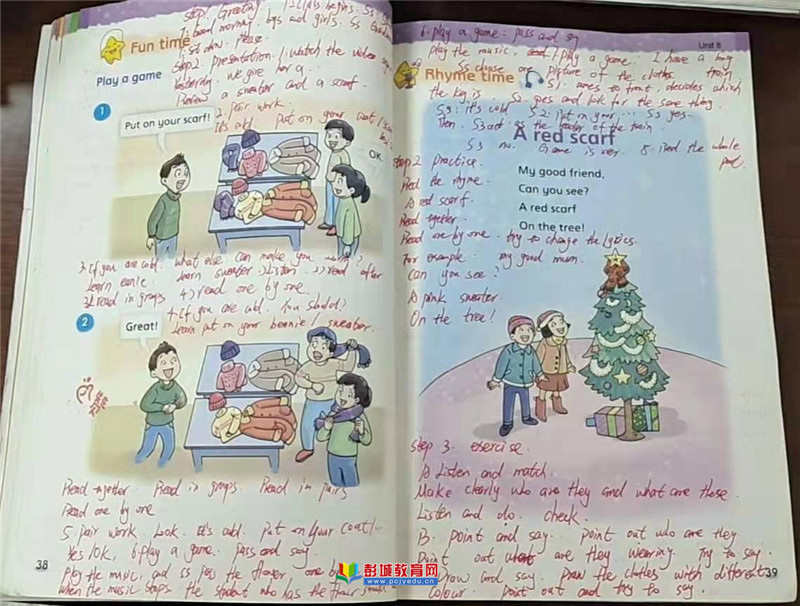 Step 1. Greeting 1. Class begins. Ss
Fun time
good morning, boys and girls. Ss
sit down please.
Play a game
Step 2. Presentation. 1. watch the video
yesterday. we give her a
Review a sweater and a scarf.
1
2. pair work.
It's cold. Put on your coat
Put on your scarf!
OK.
3. If you are cold. what else can make you warm?
learn beanie. learn sweater 1) Listen. 2) read after
3) read in groups 4) read one by one.
2
4. If you are cold. You should?
Learn put on your beanie / sweater.
Great!
Read together. Read in groups. Read in pairs
Read one by one
5. pair work. Look. It's cold. Put on your coat
Yes/OK. 6. play a game. pass and say.
Play the music, and ss pass the flower. one by
when the music stops. the student who has the flower
38
6. play a game: pass and say
Play the music, and play a game. I have a bag
Unit 8
Ss choose one picture of the clothes. train
Rhyme time
S1 comes to front, decides which
the bag is. S2 goes and look for the same thing.
S3: it's cold S2: put on your ... S3 yes.
Then. S3 act as the header of the train.
A red scarf
S3 no. Game is over. 8. read the whole
Step 2 practice.
Read the rhyme.
A red scarf.
Read together.
Read one by one. try to change the lyrics.
For example: my good mum.
Can you see?
A pink sweater.
On the tree!
My good friend,
Can you see?
A red scarf
On the tree!
Step 3. exercise.
A Listen and match.
Make clearly who are they and what are those.
Listen and do. check.
B. point and say. point out who are they.
Point out what are they wearing. Try to say.
Draw and say. Draw the clothes with different
colour. Point out and try to say.
39
彭城教育网
www.pcjyedu.cn